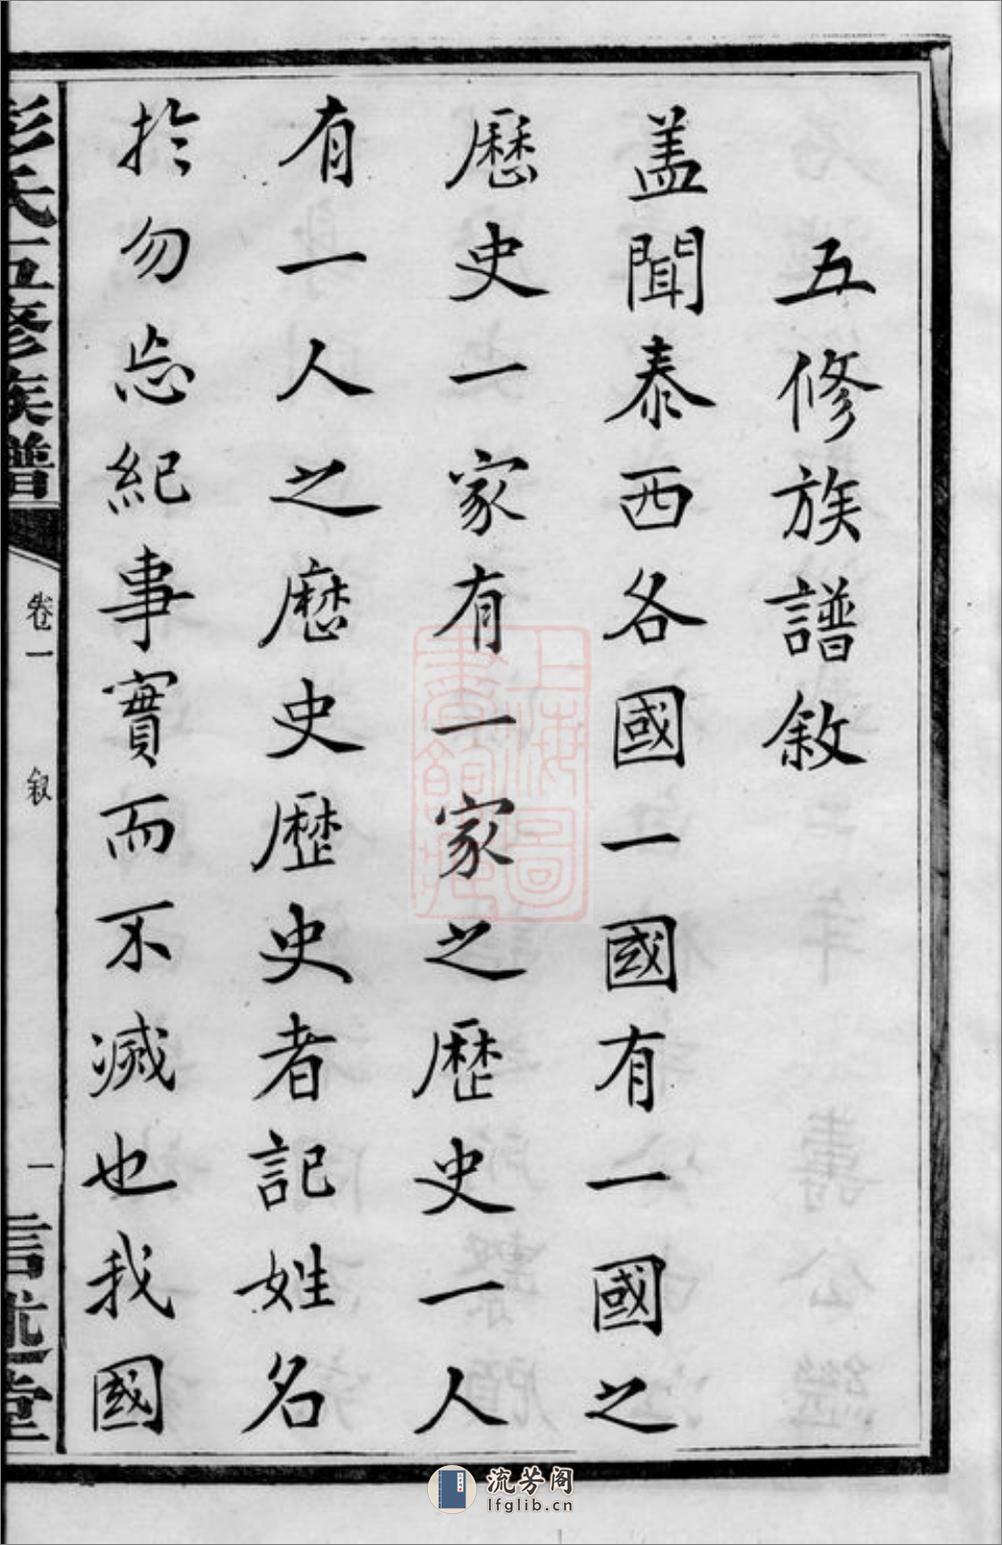 五修族譜敘
盖聞泰西各國一國有一國之
歷史一家有一家之歷史一人
有一人之歷史歷史者記姓名
於勿忘紀事實而不滅也我國
彭氏五修族譜
卷一
叙
一
信述堂
上海圖書館藏
流芳阁
lfglib.cn